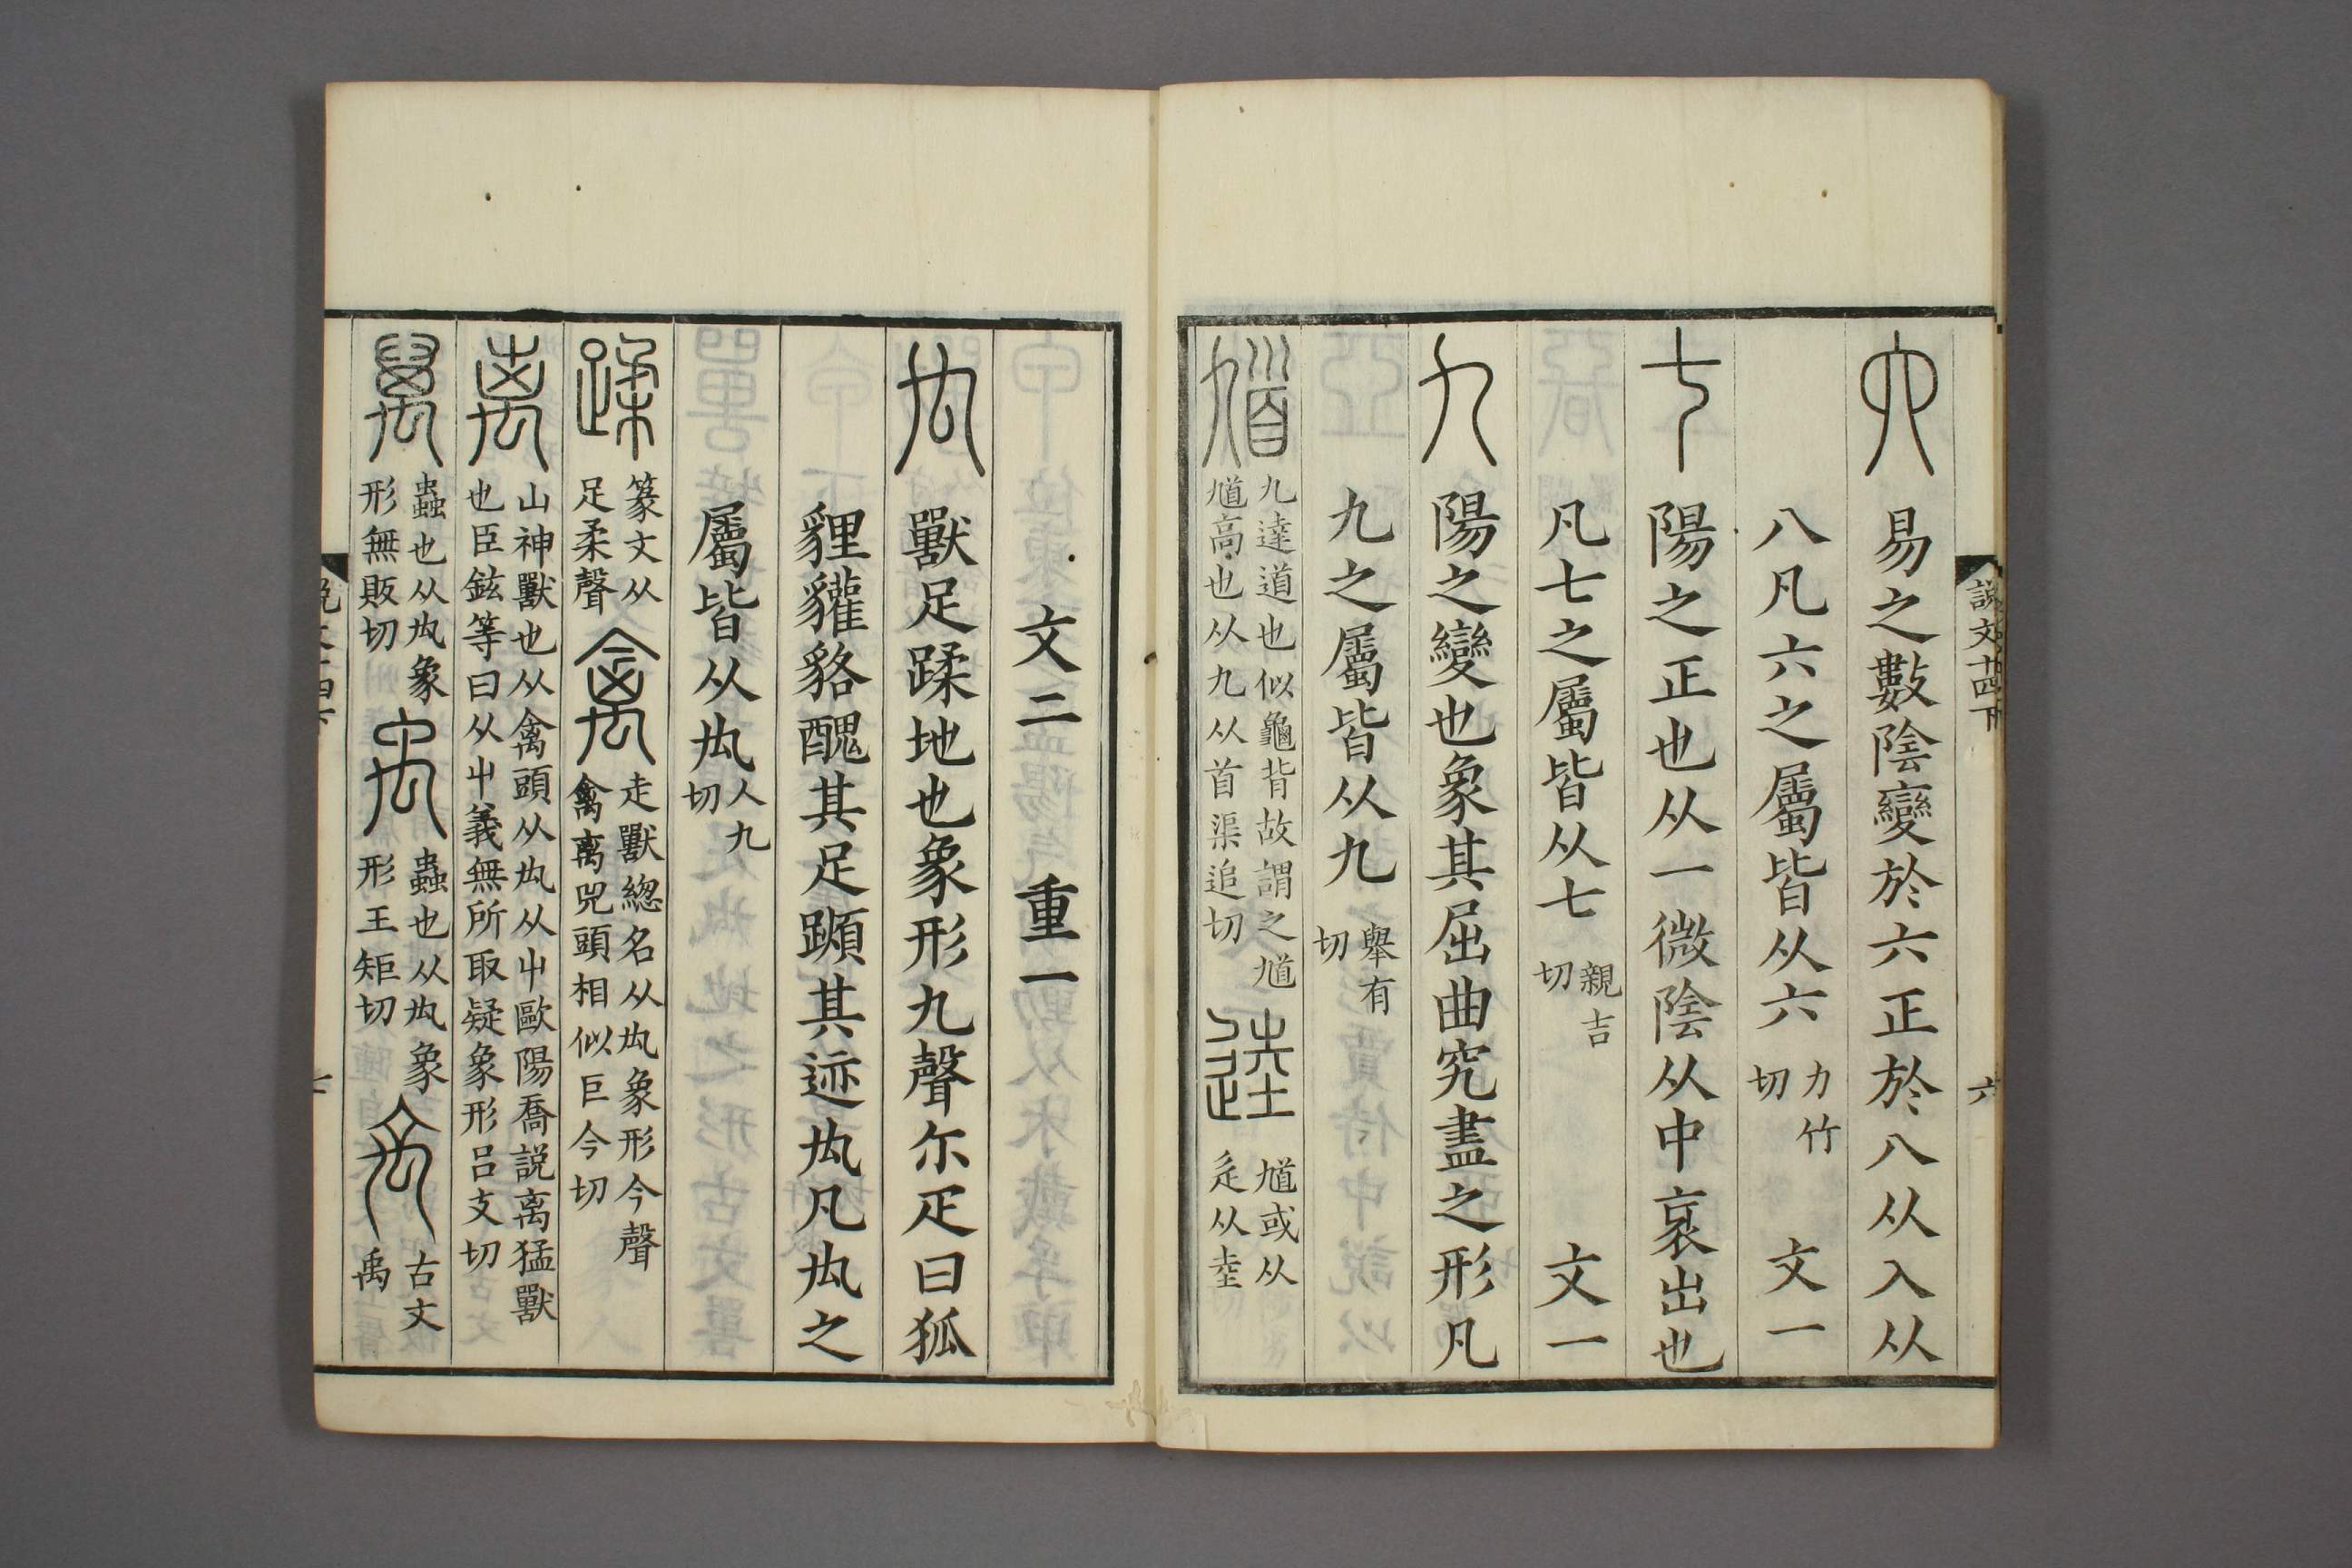 說文十四下 六
六 易之數陰變於六正於八从入从
八凡六之屬皆从六 力竹切 文一
七 陽之正也从一微陰从中衺出也
凡七之屬皆从七 親吉切 文一
九 陽之變也象其屈曲究盡之形凡
九之屬皆从九 舉有切
馗 九達道也似龜背故謂之馗馗高也从九从首渠追切 逵 馗或从辵从坴
文二 重一
禸 獸足蹂地也象形九聲尓疋曰狐
貍貛貉醜其足䠣其迹禸凡禸之
屬皆从禸 人九切
蹂 篆文从足柔聲 禽 走獸緫名从禸象形今聲禽离兕頭相似巨今切
离 山神獸也从禽頭从禸从屮歐陽喬說离猛獸也臣鉉等曰从屮義無所取疑象形呂支切
萬 蟲也从禸象形無販切 禹 蟲也从禸象形王矩切 𠁼 古文禹
說文十四下 七